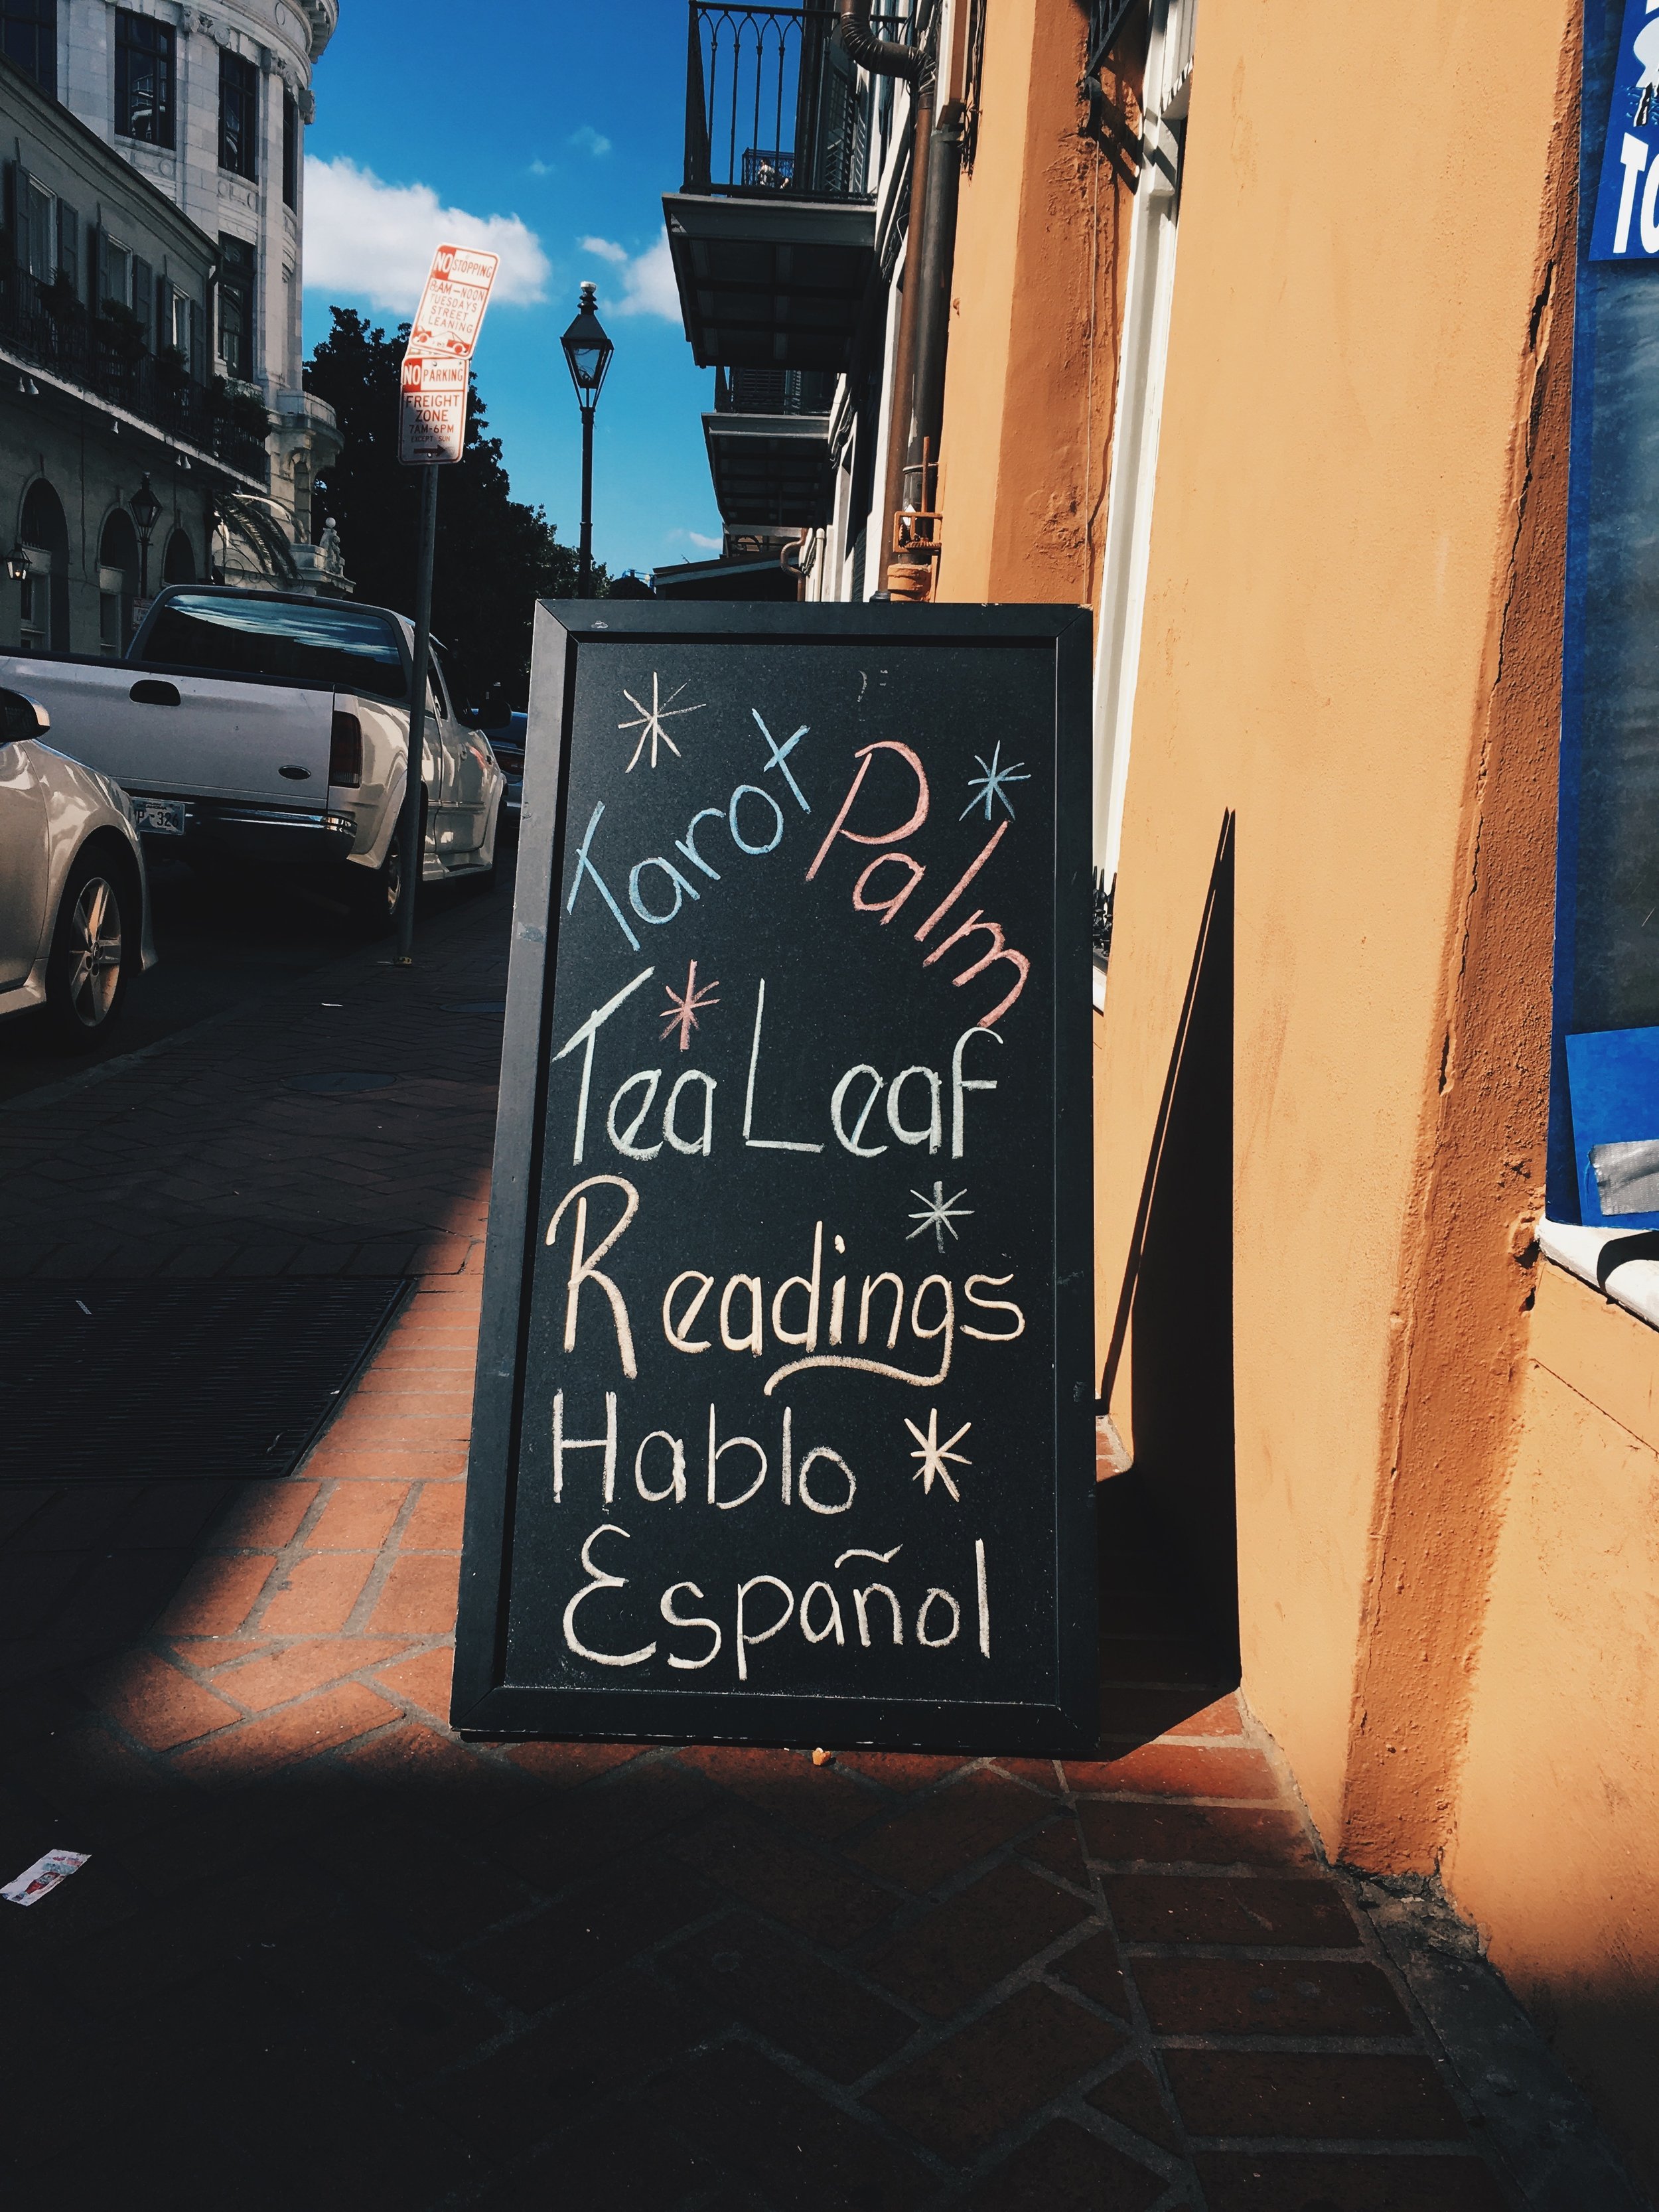 NO STOPPING
8AM-NOON
TUESDAYS
STREET
NO PARKING
FREIGHT
ZONE
7AM-6PM
EXCEPT SUN
Tarot Palm
Tea Leaf
Readings
Hablo
Español